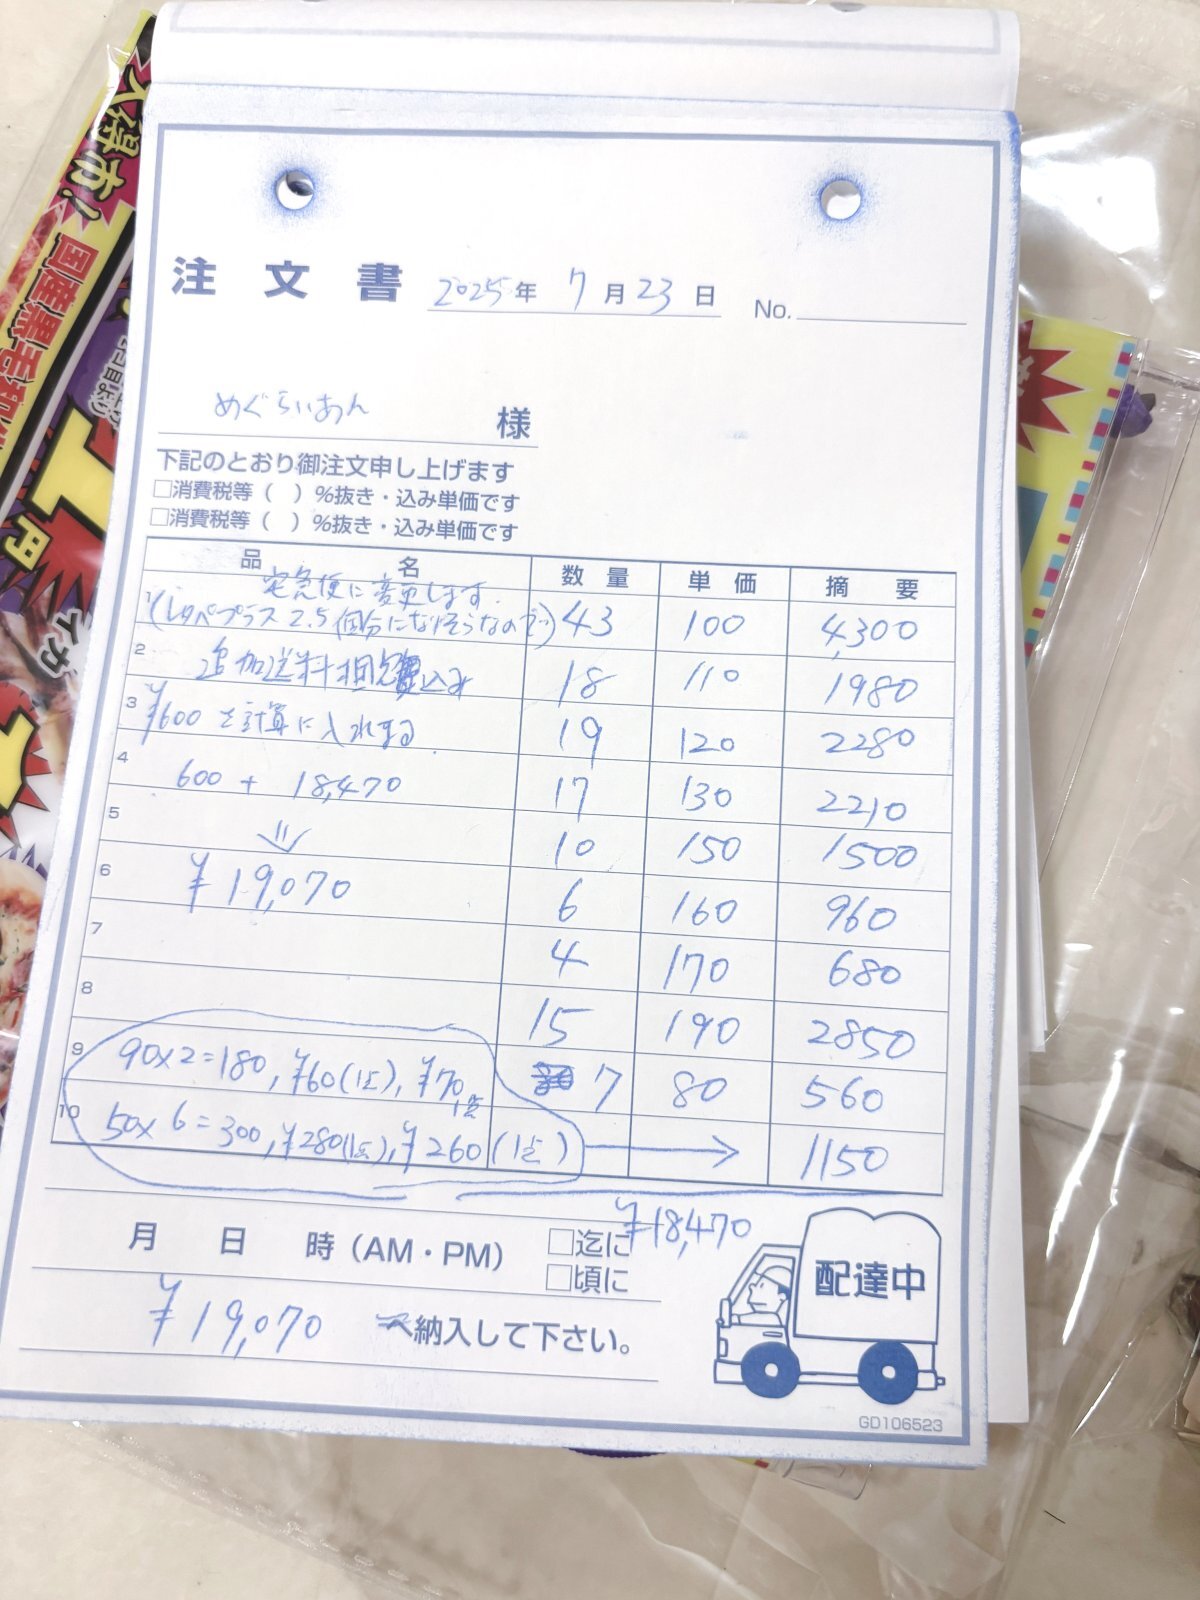 大得市!
国産黒毛和
円
イカ
注文書 2025年 7月23日 No.
めぐらいあん 様
下記のとおり御注文申し上げます
□消費税等( )%抜き・込み単価です
□消費税等( )%抜き・込み単価です
品名 数量 単価 摘要
宅急便に変更します.
1 (レタパプラス 2.5個分になりそうなので) 43 100 4,300
2 追加送料担 込み 18 110 1980
3 ¥600 を計算に入れまる 19 120 2280
4 600 + 18,470 17 130 2210
5 10 150 1500
6 ¥19,070 6 160 960
7 4 170 680
8 15 190 2850
9 90×2=180, ¥60(1点), ¥70 1点 7 80 560
10 50×6=300, ¥280(1点), ¥260(1点) → 1150
¥18,470
月 日 時(AM・PM) □迄に
□頃に
¥19,070 納入して下さい。
配達中
GD106523